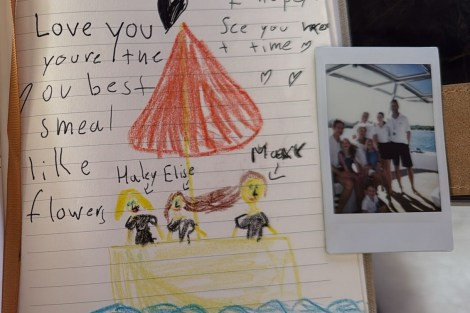 Love you
youre the
you best
smeal
like
flowers
See you
t time
Haley Elise Mark